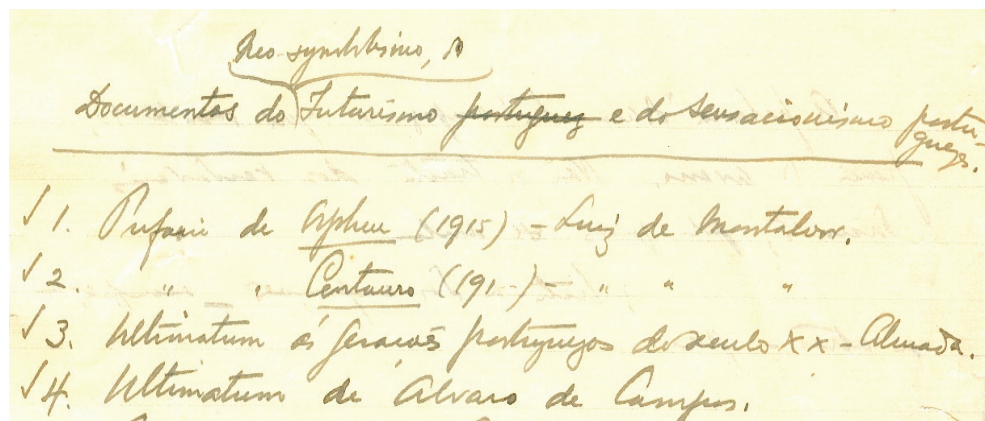 Neo-symbolismo, do
Documentos do Futurismo portuguez e do sensacionismo portuguezes.
√ 1. Prefacio de Orpheu (1915) - Luiz de Montalvor.
√ 2. " " Centauro (191-) - " " "
√ 3. Ultimatum ás gerações portuguezas do seculo XX - Almada.
√ 4. Ultimatum de Alvaro de Campos.